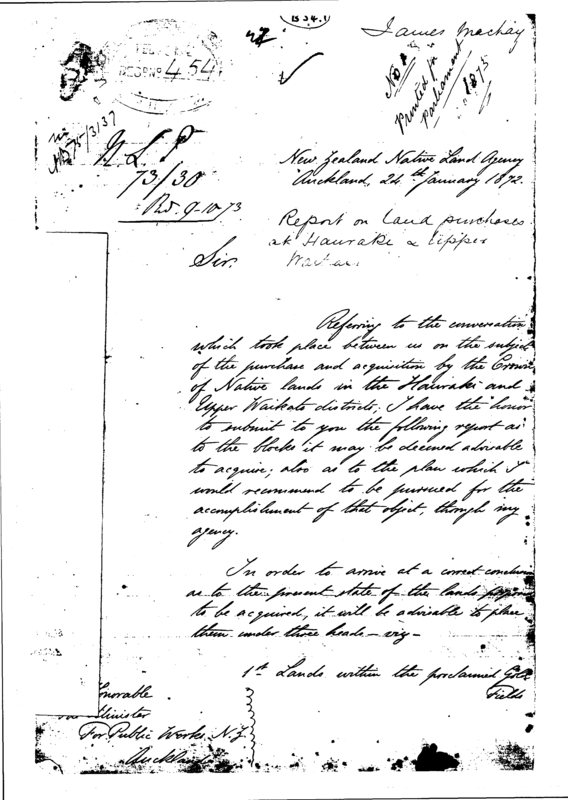 B34.1
James Mackay
454
No 8
Printed for
Parliament
1875
75/3137
N L P
73/30
Rd. 9-10-73
New Zealand Native Land Agency
Auckland, 24th January 1872.
Report on land purchases
at Hauraki & Upper
Sir,
Referring to the conversation
which took place between us on the subject
of the purchase and acquisition by the Crown
of Native lands in the Hauraki and
Upper Waikato districts, I have the honor
to submit to you the following report as
to the blocks it may be deemed advisable
to acquire; also as to the plan which I
would recommend to be pursued for the
accomplishment of that object, through my
agency.
In order to arrive at a correct conclusion
as to the present state of the lands
to be acquired, it will be advisable to place
them under three heads – viz –
1st Lands within the proclaimed Gold
Fields
Honorable
Minister
For Public Works N.Z
Auckland